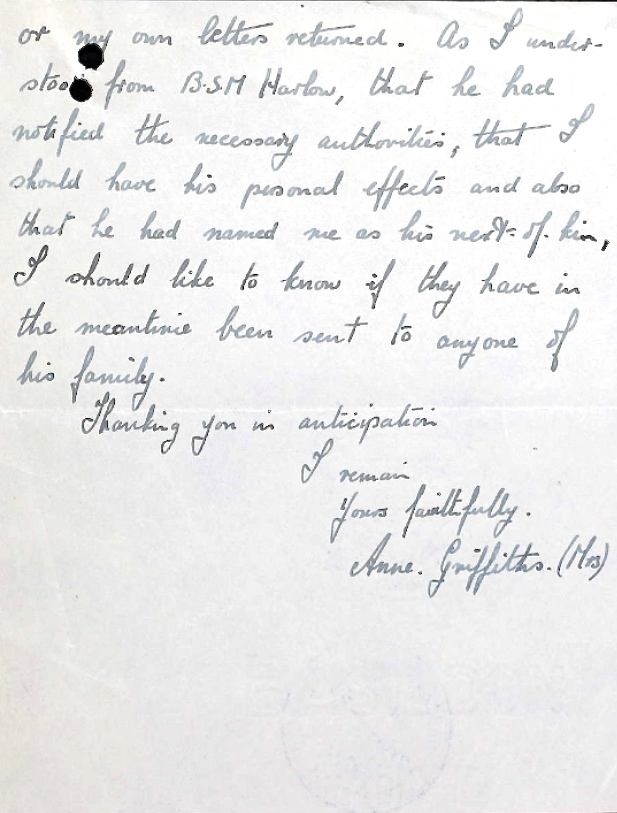 or my own letters returned. As I under-
stood from B.S.M Harlow, that he had
notified the necessary authorities, that I
should have his personal effects and also
that he had named me as his next-of-kin,
I should like to know if they have in
the meantime been sent to anyone of
his family.
Thanking you in anticipation
I remain
Yours faithfully.
Anne. Griffiths. (Mrs)